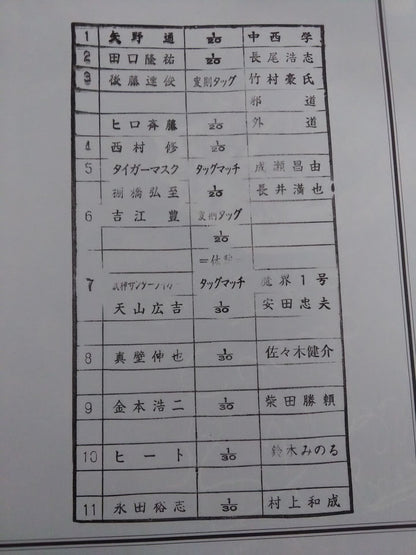 1 矢野通 1/20 中西学
2 田口隆祐 1/20 長尾浩志
3 後藤達俊 変則タッグ 竹村豪氏
邪道
ヒロ斉藤 1/20 外道
4 西村修 1/20
5 タイガーマスク タッグマッチ 成瀬昌由
棚橋弘至 1/20 長井満也
6 吉江豊 変則タッグ
1/20
=休憩=
7 獣神サンダー タッグマッチ 魔界1号
天山広吉 1/30 安田忠夫
8 真壁伸也 1/30 佐々木健介
9 金本浩二 1/30 柴田勝頼
10 ヒート 1/30 鈴木みのる
11 永田裕志 1/30 村上和成